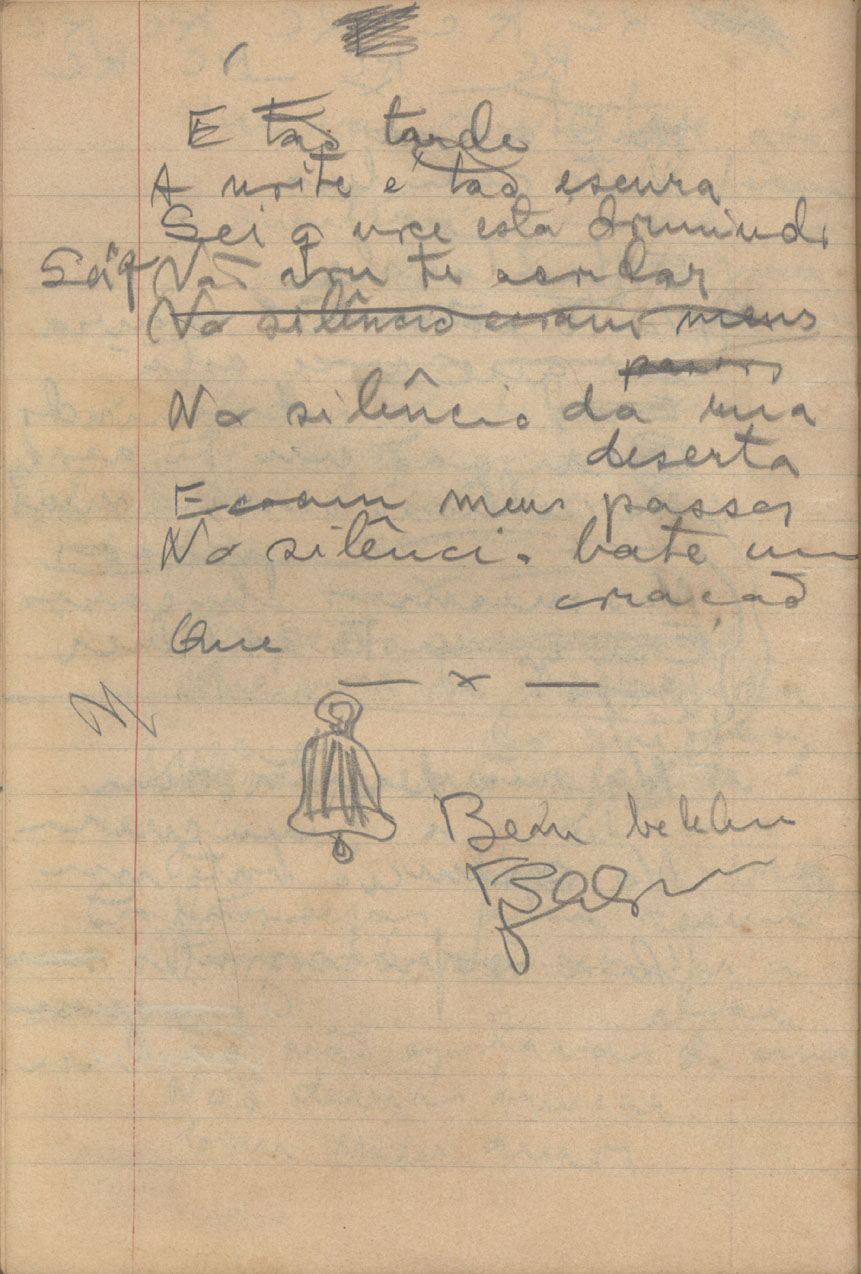 E tão tarde
A noite é tão escura
Sei q voce está dormindo
Sei q Não vou te acordar
No silêncio ecoam meus
passos
No silêncio da rua
deserta
Ecoam meus passos
No silêncio bate um
coração
Que
— x —